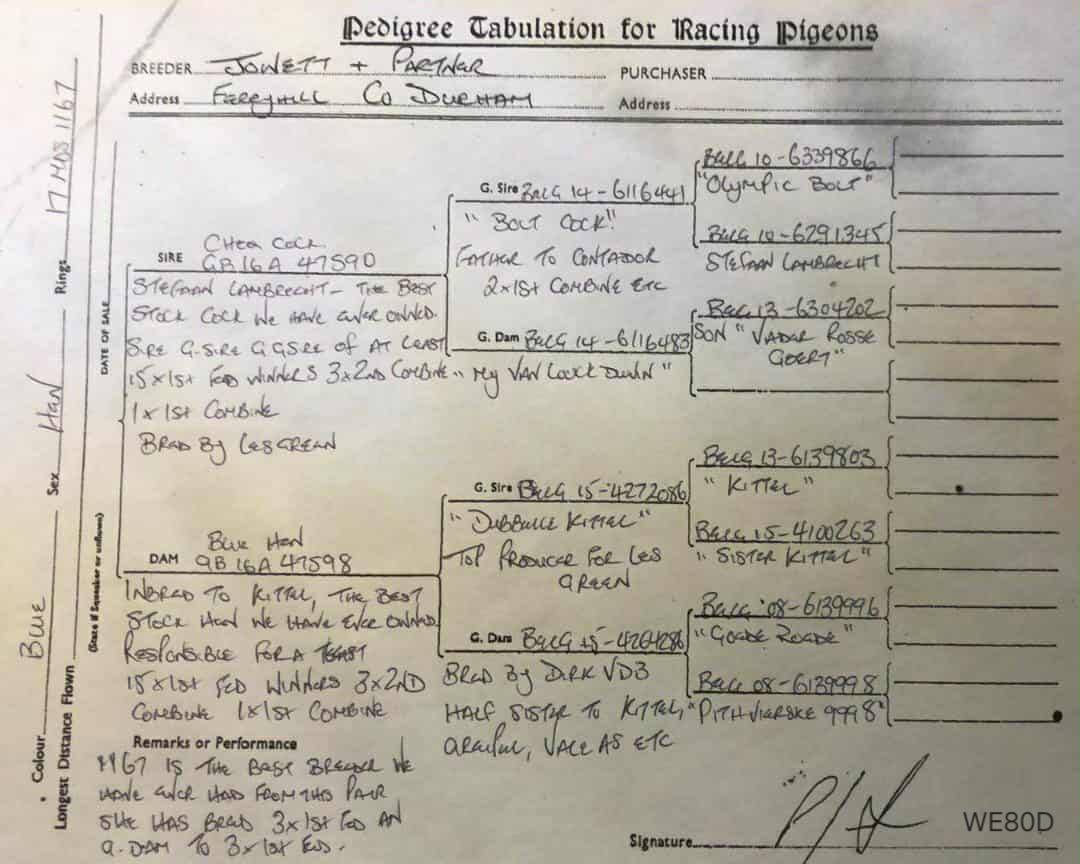 Pedigree Tabulation for Racing Pigeons
BREEDER JOWETT + PARTNER
PURCHASER
Address FERRYHILL CO DURHAM
Address
Colour BLUE Sex HEN Rings 17 MDS 1167
Longest Distance Flown
DATE OF SALE
(Erase if Squeaker or unflown)
CHEQ COCK
SIRE GB16A 47590
STEFAAN LAMBRECHT - THE BEST
STOCK COCK WE HAVE EVER OWNED.
SIRE G.SIRE G.GSIRE OF AT LEAST
15x1st FED WINNERS 3x2ND COMBINE
1x1st COMBINE
BRED BY LES GREEN
BLUE HEN
DAM GB16A 47598
INBRED TO KITTEL, THE BEST
STOCK HEN WE HAVE EVER OWNED
RESPONSIBLE FOR A LEAST
15x1st FED WINNERS 3x2ND
COMBINE 1x1st COMBINE
Remarks or Performance
1167 IS THE BEST BREEDER WE
HAVE EVER HAD FROM THIS PAIR
SHE HAS BRED 3x1st FED AN
G.DAM TO 3x1st FED.
G. Sire BELG 14-6116441
"BOLT COCK"
FATHER TO CONTADOR
2x1st COMBINE ETC
G. Dam BELG 14-6116483
"MY VAN LOCK DUVIN"
G. Sire BELG 15-4272086
"DUBBELLE KITTEL"
TOP PRODUCER FOR LES
GREEN
G. Dam BELG 15-4204286
BRED BY DIRK VD3
HALF SISTER TO KITTEL,
VALE AS ETC
BELG 10-6339866
"OLYMPIC BOLT"
BELG 10-6291345
STEFAAN LAMBRECHT
BELG 13-6304202
SON "VADER ROSSE
GOERT"
BELG 13-6139803
"KITTEL"
BELG 15-4100263
"SISTER KITTEL"
BELG 08-6139996
"GOEDE RODE"
BELG 08-6139998
"PITHVIERSKE 9998"
Signature
WE80D